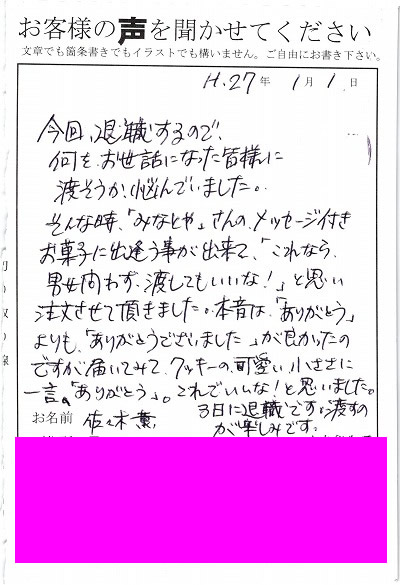 お客様の声を聞かせてください
文章でも箇条書きでもイラストでも構いません。ご自由にお書き下さい。
H.27年 1月 1日
今回、退職するので、
何を、お世話になった皆様に
渡そうか、悩んでいました。
そんな時、「みなとや」さんの、メッセージ付き
お菓子に出逢う事が出来て、「これなら、
男女問わず、渡してもいいな!」と思い
注文させて頂きました。本音は、「ありがとう」
よりも、「ありがとうございました」が良かったの
ですが、届いてみて、クッキーの、可愛い小ささに
一言。「ありがとう」。これでいいな!と思いました。
3日に退職です。渡すの
が楽しみです。
お名前 佐々木 薫